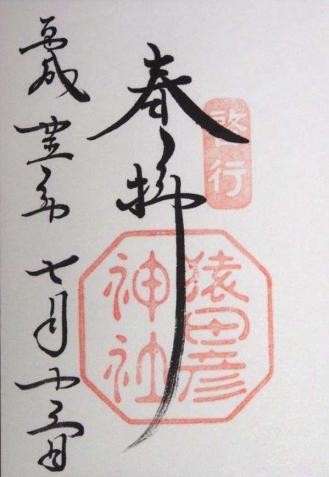 啓行
奉拝
猿田彦
神社
平成廿五年七月十三日